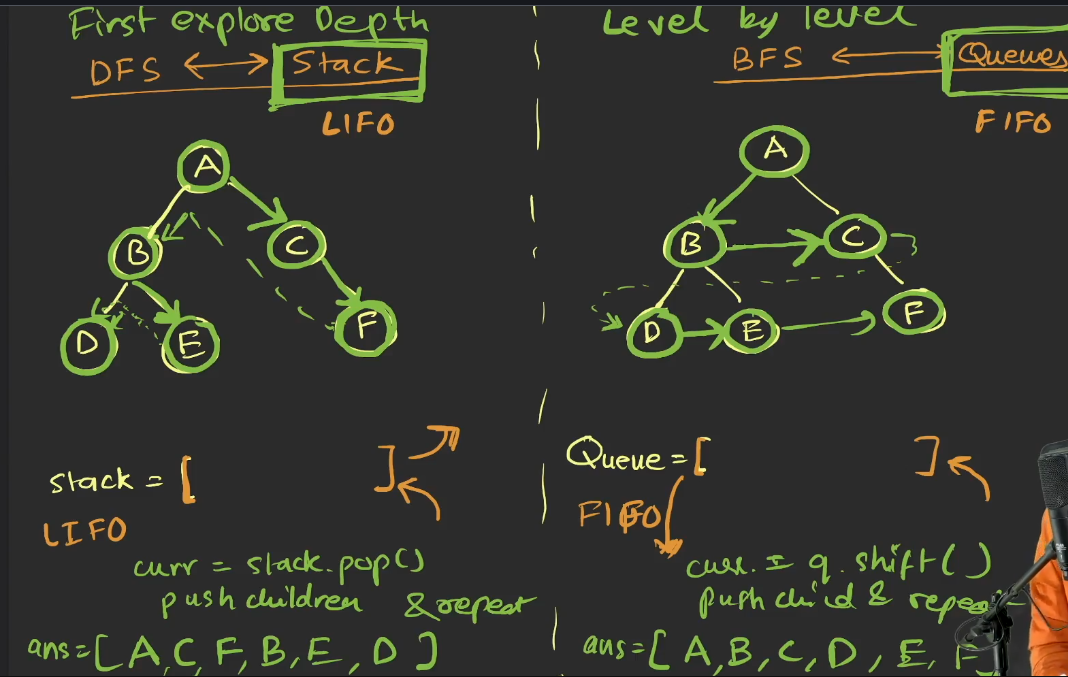 First explore Depth
DFS ↔ Stack
LIFO
A
B
C
D
E
F
stack = [ ]
LIFO
curr = stack.pop()
push children & repeat
ans = [A, C, F, B, E, D]
Level by level
BFS ↔ Queues
FIFO
A
B
C
D
E
F
Queue = [ ]
FIFO
curr. = q.shift()
push child & repeat
ans = [A, B, C, D, E, F]